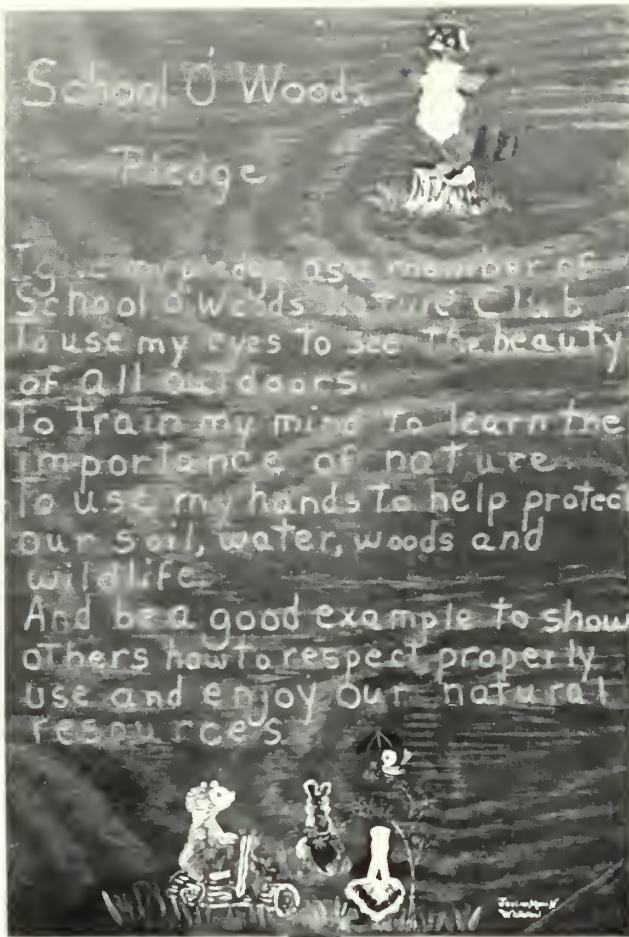 School O' Woods
Pledge
I give my pledge as a member of
School O' Woods Nature Club
To use my eyes to see the beauty
of all outdoors.
To train my mind to learn the
importance of nature
To use my hands to help protect
our soil, water, woods and
wildlife.
And be a good example to show
others how to respect properly
use and enjoy our natural
resources